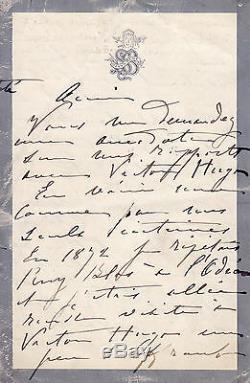 Ami
Vous me demandez
une anecdote
sur mes rapports
avec Victor Hugo
En voici une
connue par nous
seuls
En 1872 je répétais
Ruy Blas à l'Odéon
et j'étais allée
rendre visite à
Victor Hugo un
peu